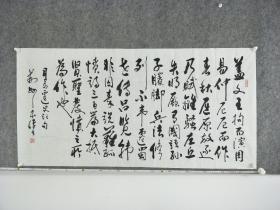 蓋文王拘而演周
易仲尼厄而作
春秋屈原放逐
乃賦離騷左丘
失明厥有國語孫
子臏腳兵法修
列不韋遷蜀
世傳呂覽韓
非囚秦說難孤
憤詩三百篇大抵
賢聖發憤之所
為作也